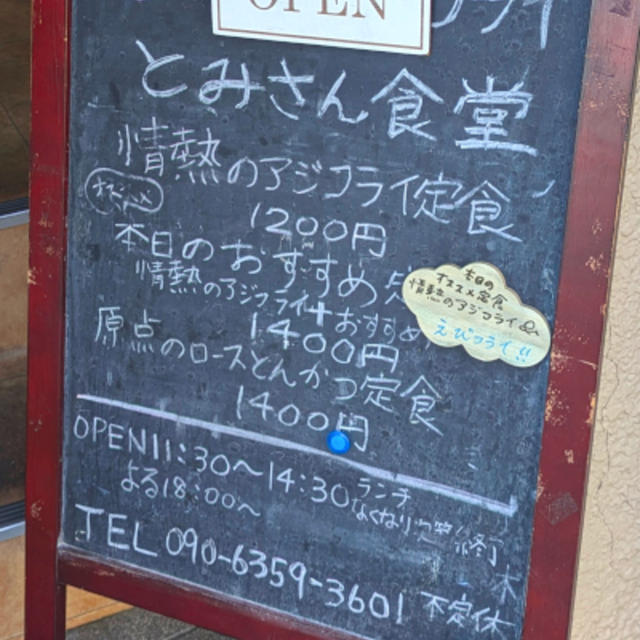 OPEN
フライ
とみさん食堂
情熱のアジフライ定食
1200円
本日のおすすめ
情熱のアジフライ+おすすめ
1400円
原点のロースとんかつ定食
1400円
本日の
オススメ定食
情熱のアジフライ&
えびフライ!!
OPEN11:30〜14:30 ランチ
よる18:00〜 なくなり次第終了
TEL 090-6359-3601 不定休